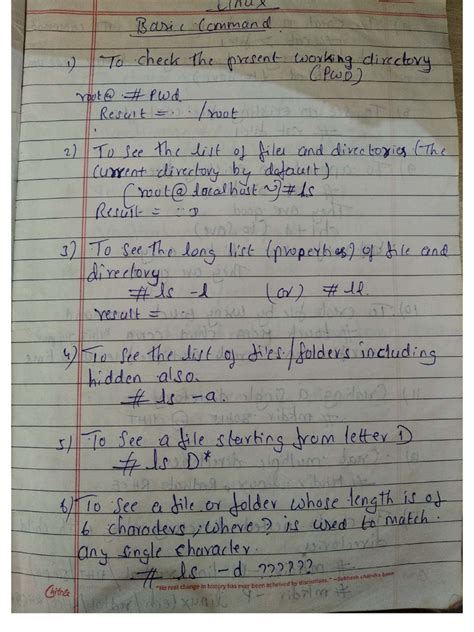 Linux
Basic Command
1) To check the present working directory
(PWD)
root@ # Pwd
Result = /root
2) To see the list of files and directories (The
current directory by default)
(root@localhost ~)# ls
Result =
3) To see the long list (properties) of file and
directory
# ls -l (or) # ll
result =
4) To see the list of files/folders including
hidden also.
# ls -a.
5) To see a file starting from letter D
# ls D*
6) To see a file or folder whose length is of
6 characters, where ? is used to match
any single character.
# ls -d ??????
Chitra
"No real change in history has ever been achieved by discussions." -Subhash chandra bose